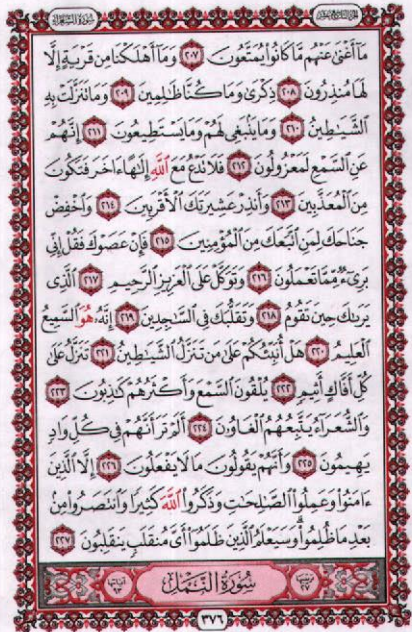 سورة الشعراء
الجزء التاسع عشر
مَآ أَغْنَىٰ عَنْهُم مَّا كَانُوا۟ يُمَتَّعُونَ ٢٠٧ وَمَآ أَهْلَكْنَا مِن قَرْيَةٍ إِلَّا
لَهَا مُنذِرُونَ ٢٠٨ ذِكْرَىٰ وَمَا كُنَّا ظَٰلِمِينَ ٢٠٩ وَمَا تَنَزَّلَتْ بِهِ
ٱلشَّيَٰطِينُ ٢١٠ وَمَا يَنۢبَغِى لَهُمْ وَمَا يَسْتَطِيعُونَ ٢١١ إِنَّهُمْ
عَنِ ٱلسَّمْعِ لَمَعْزُولُونَ ٢١٢ فَلَا تَدْعُ مَعَ ٱللَّهِ إِلَٰهًا ءَاخَرَ فَتَكُونَ
مِنَ ٱلْمُعَذَّبِينَ ٢١٣ وَأَنذِرْ عَشِيرَتَكَ ٱلْأَقْرَبِينَ ٢١٤ وَٱخْفِضْ
جَنَاحَكَ لِمَنِ ٱتَّبَعَكَ مِنَ ٱلْمُؤْمِنِينَ ٢١٥ فَإِنْ عَصَوْكَ فَقُلْ إِنِّى
بَرِىٓءٌ مِّمَّا تَعْمَلُونَ ٢١٦ وَتَوَكَّلْ عَلَى ٱلْعَزِيزِ ٱلرَّحِيمِ ٢١٧ ٱلَّذِى
يَرَىٰكَ حِينَ تَقُومُ ٢١٨ وَتَقَلُّبَكَ فِى ٱلسَّٰجِدِينَ ٢١٩ إِنَّهُۥ هُوَ ٱلسَّمِيعُ
ٱلْعَلِيمُ ٢٢٠ هَلْ أُنَبِّئُكُمْ عَلَىٰ مَن تَنَزَّلُ ٱلشَّيَٰطِينُ ٢٢١ تَنَزَّلُ عَلَىٰ
كُلِّ أَفَّاكٍ أَثِيمٍ ٢٢٢ يُلْقُونَ ٱلسَّمْعَ وَأَكْثَرُهُمْ كَٰذِبُونَ ٢٢٣
وَٱلشُّعَرَآءُ يَتَّبِعُهُمُ ٱلْغَاوُۥنَ ٢٢٤ أَلَمْ تَرَ أَنَّهُمْ فِى كُلِّ وَادٍ
يَهِيمُونَ ٢٢٥ وَأَنَّهُمْ يَقُولُونَ مَا لَا يَفْعَلُونَ ٢٢٦ إِلَّا ٱلَّذِينَ
ءَامَنُوا۟ وَعَمِلُوا۟ ٱلصَّٰلِحَٰتِ وَذَكَرُوا۟ ٱللَّهَ كَثِيرًا وَٱنتَصَرُوا۟ مِنۢ
بَعْدِ مَا ظُلِمُوا۟ وَسَيَعْلَمُ ٱلَّذِينَ ظَلَمُوٓا۟ أَىَّ مُنقَلَبٍ يَنقَلِبُونَ ٢٢٧
ترتيبها ٢٧ سُورَةُ النَّمْلِ آياتها ٩٣
٣٧٦